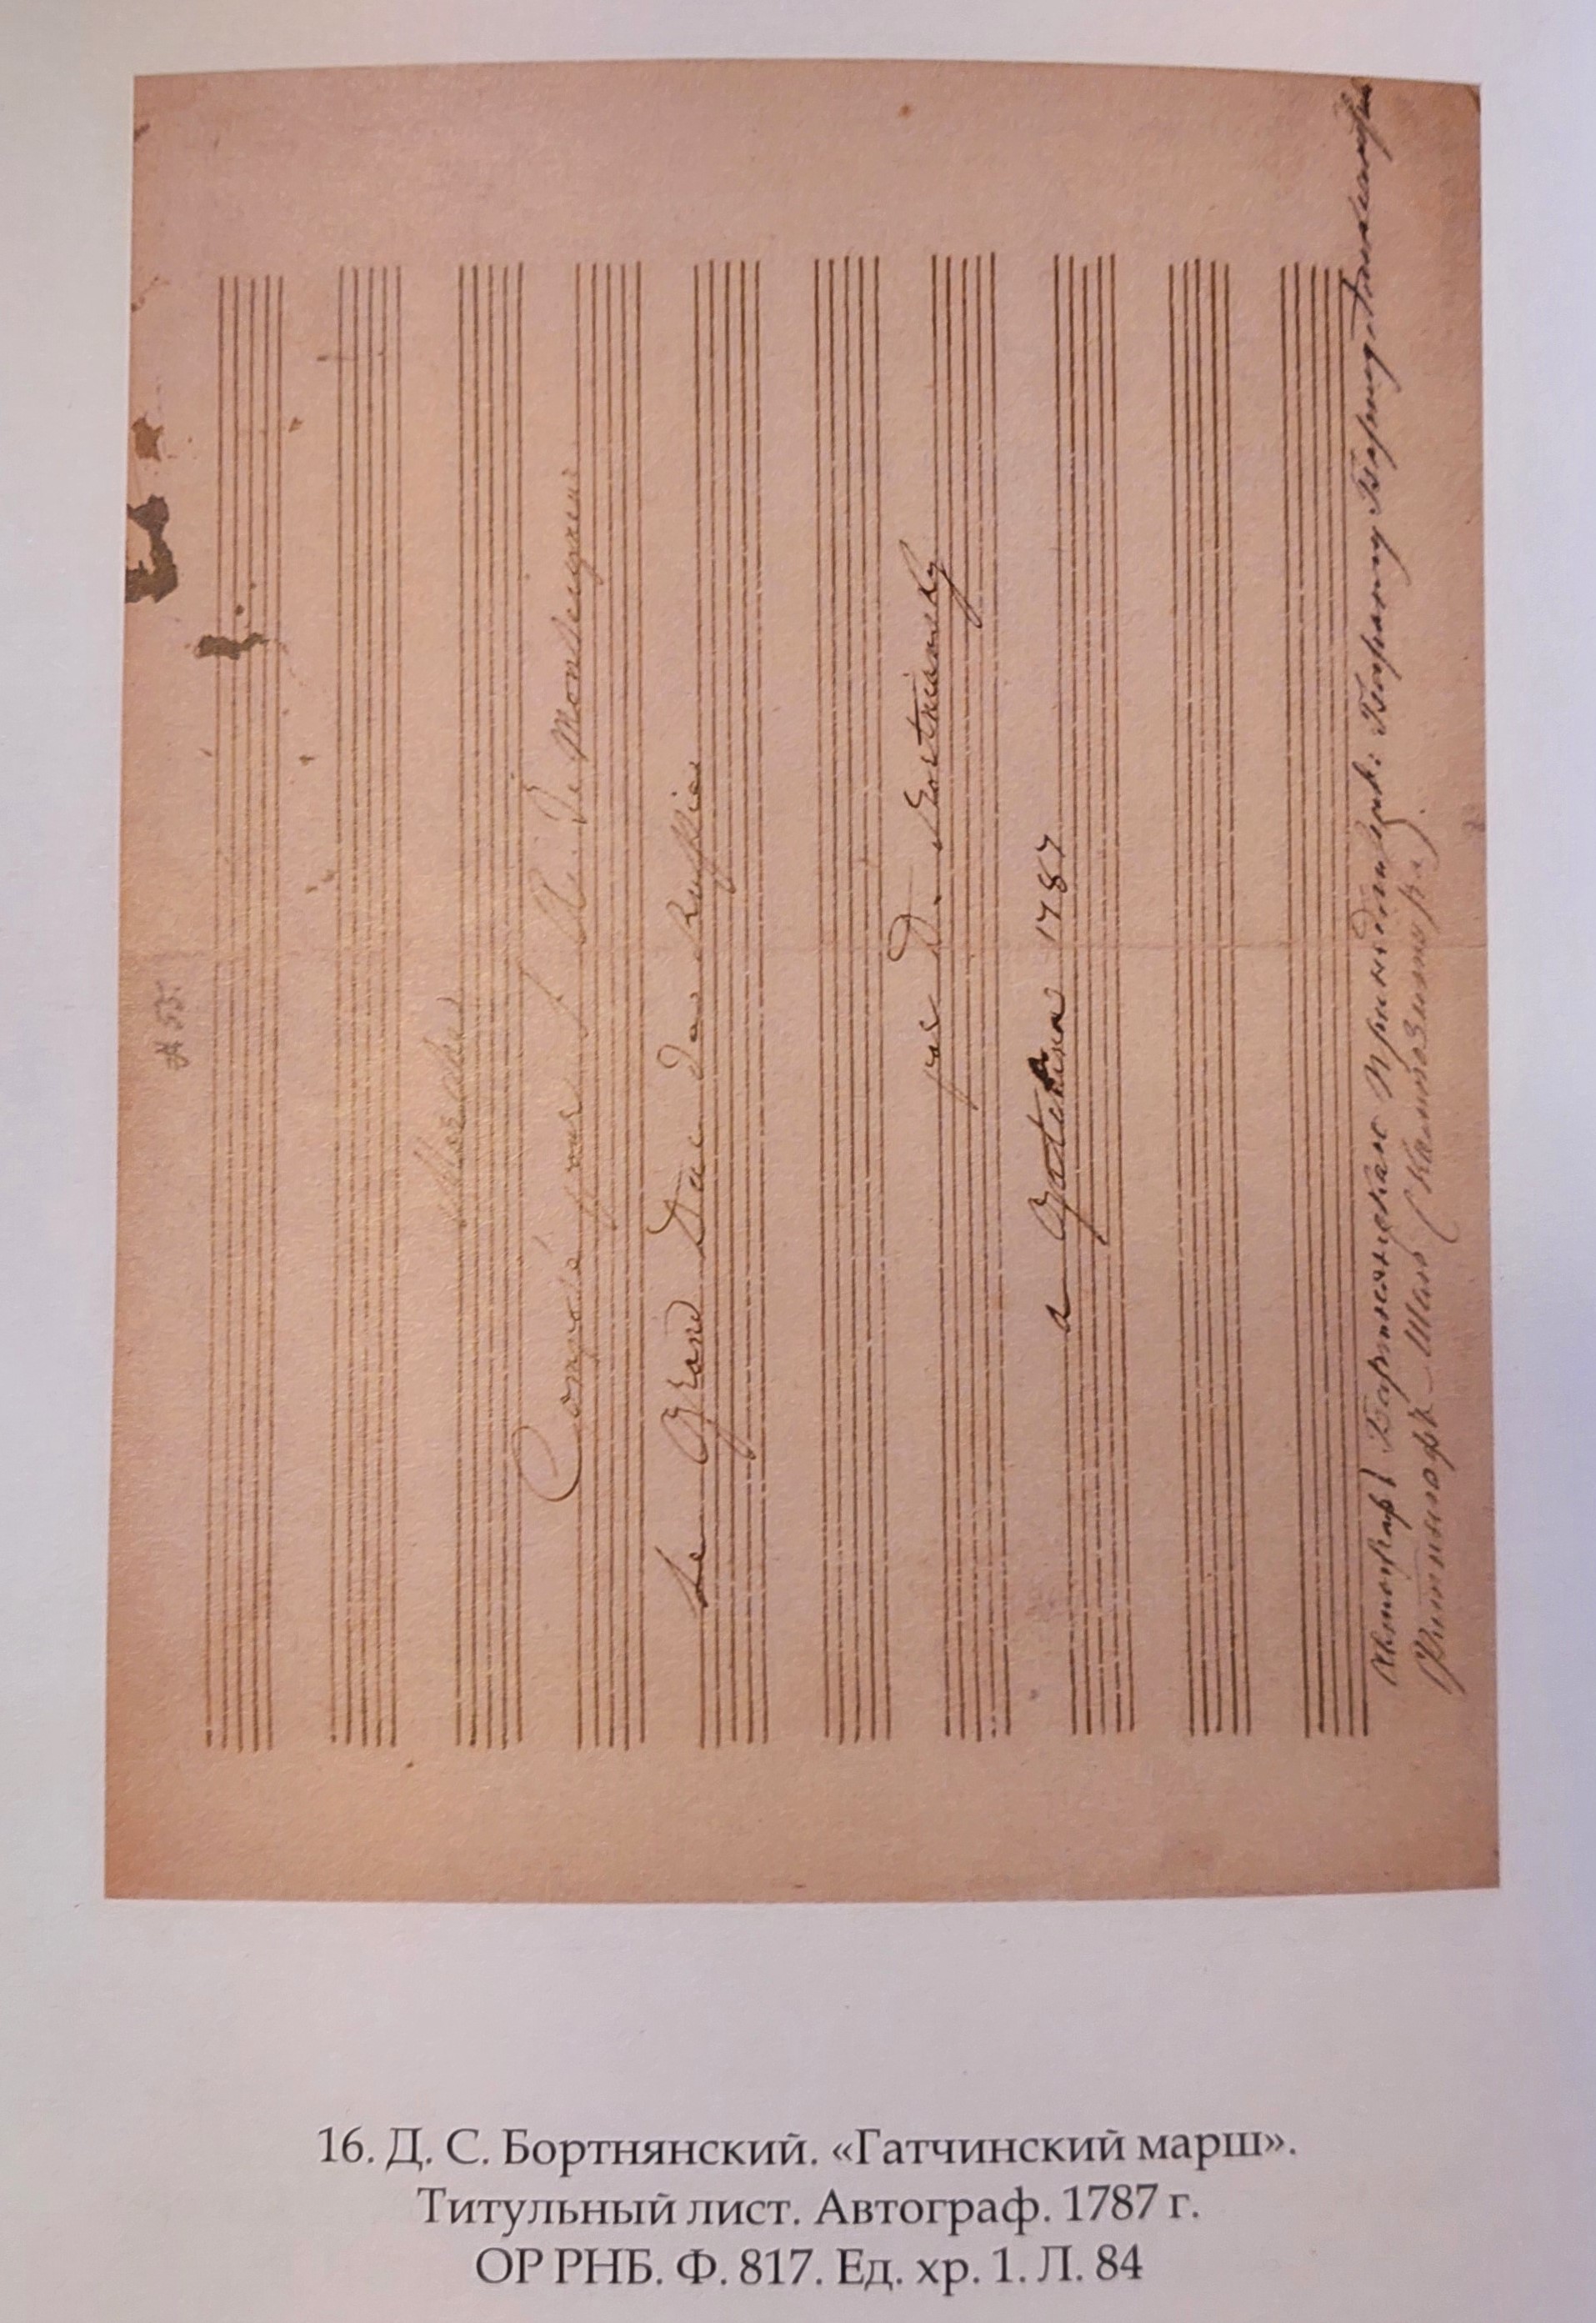 № 53.
Marche
Composé pour S. A. I. De Monseigneur
Le Grand Duc De Russie
par D. Bortniansky
a Gatchina 1787
Автограф Бортнянскаго Принадлеж: Барону Бернгарду
Фитингофъ Шель
16. Д. С. Бортнянский. «Гатчинский марш».
Титульный лист. Автограф. 1787 г.
ОР РНБ. Ф. 817. Ед. хр. 1. Л. 84